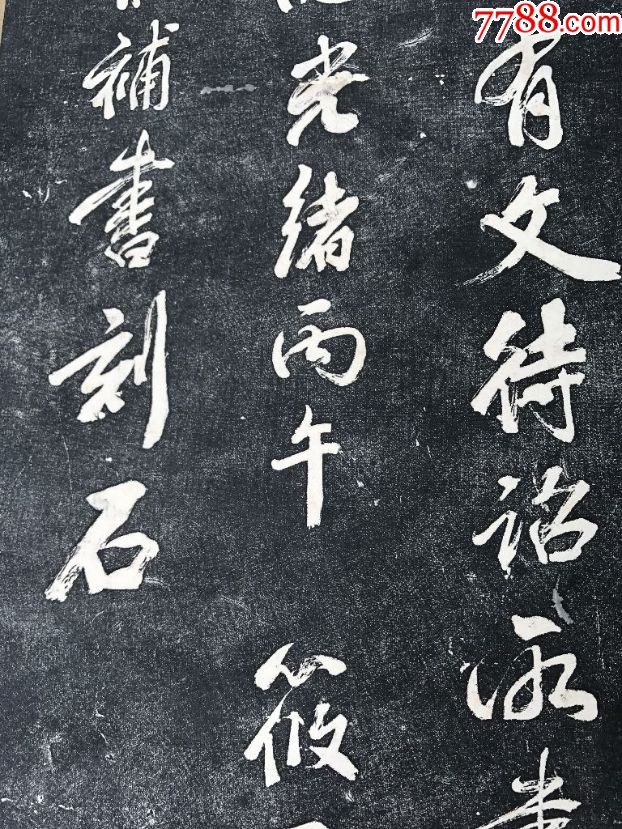 7788.com
有文待詔所書
光緒丙午 筱
補書刻石